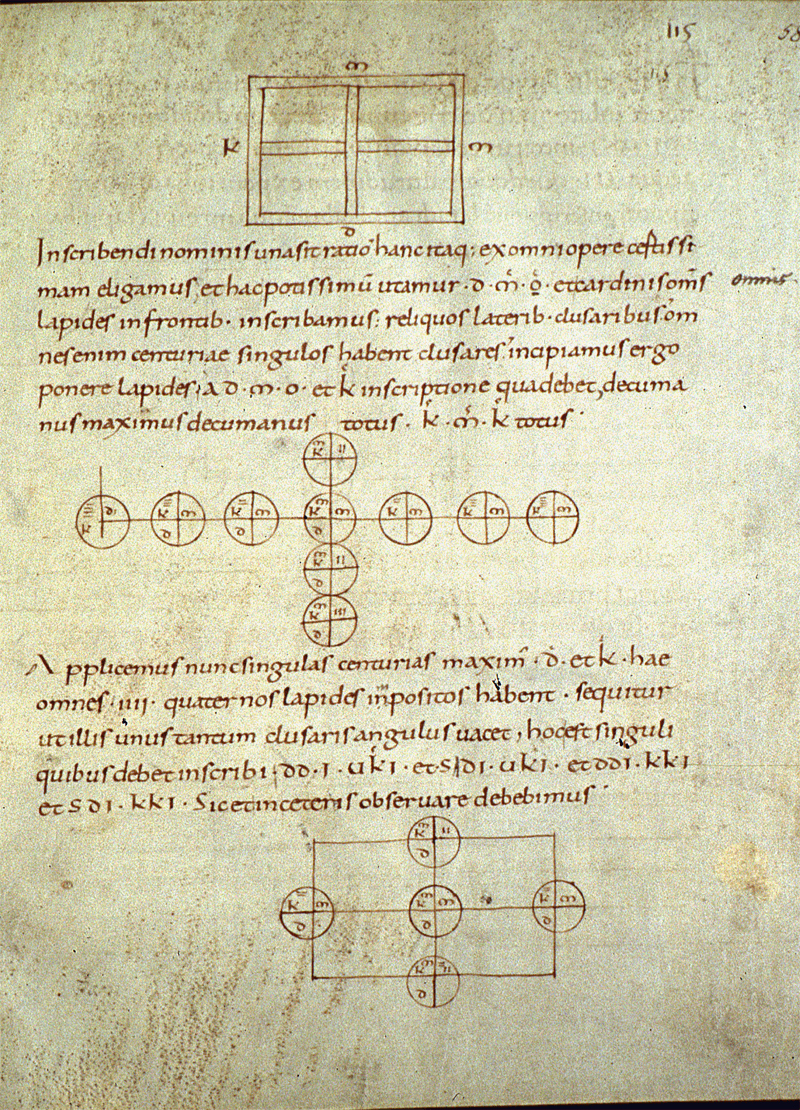 115 58
115
m
k m
d
Inscribendi nominis una sit ratio hanc itaq; ex omni opere certissi
mam eligamus. et hac potissimū utamur · d · m̄ · o · et cardinis om̄s omnis
lapides in frontib · inscribamus: reliquos laterib · clusaribus om
nes enim centuriae singulos habent clusares incipiamus ergo
ponere lapides A D · m · o · et k inscriptione qua debet, decuma
nus maximus decumanus totus · k · m̄ · k totus
km II
k d k d m k m km d m k m k m k m
km d II
km d III
Applicemus nunc singulas centurias maxim̄ · d · et k · hae
omnes · IIII · quaternos lapides inpositos habent · sequitur
ut illis unus tantum clusaris angulus vacet, hoc est singuli
quibus debet inscribi · DD · I · U k I · et S D I · U k I · et DD I · k k I
et S D I · k k I · Sic et in ceteris observare debebimus
km d II
k d m km d m k d m
km d II